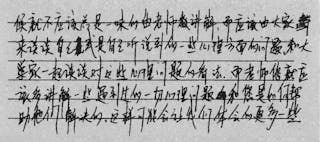 候就不应该总是一味的由老师教讲解,而应该由大家
来谈谈自己或是自己听说到的一些心理方面的问题和大
家一起谈谈对这些心理问题的看法,而老师候就应
该多讲解一些遇到过的一切心理问题和您是如何帮
助他们解决的,这样可能会让我们体会的更多一些